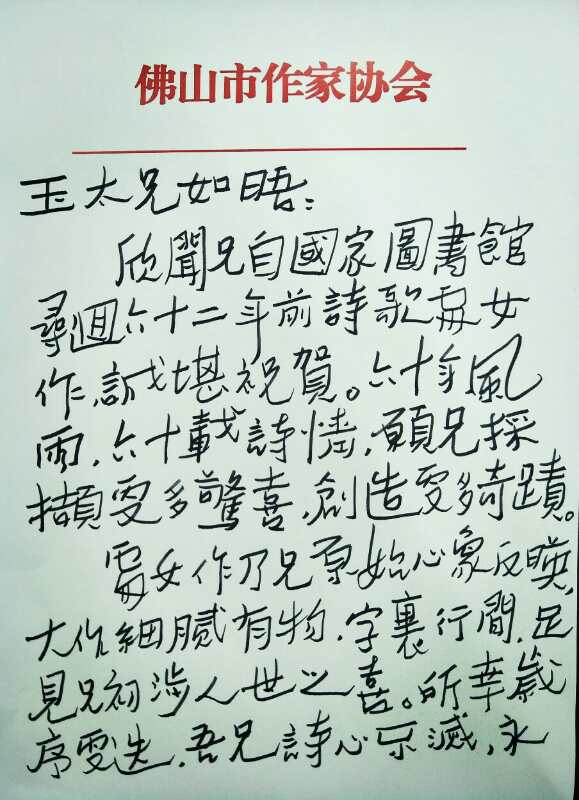 佛山市作家协会
玉太兄如晤：
欣聞兄自國家圖書館
尋迴六十二年前詩歌處女
作，誠堪祝賀。六十年風
雨，六十載詩情，願兄採
擷更多驚喜，創造更多奇蹟。
處女作乃兄原始心象反映，
大作細膩有物，字裏行間，足
見兄初涉人世之喜。所幸歲
序更迭，吾兄詩心不滅，永